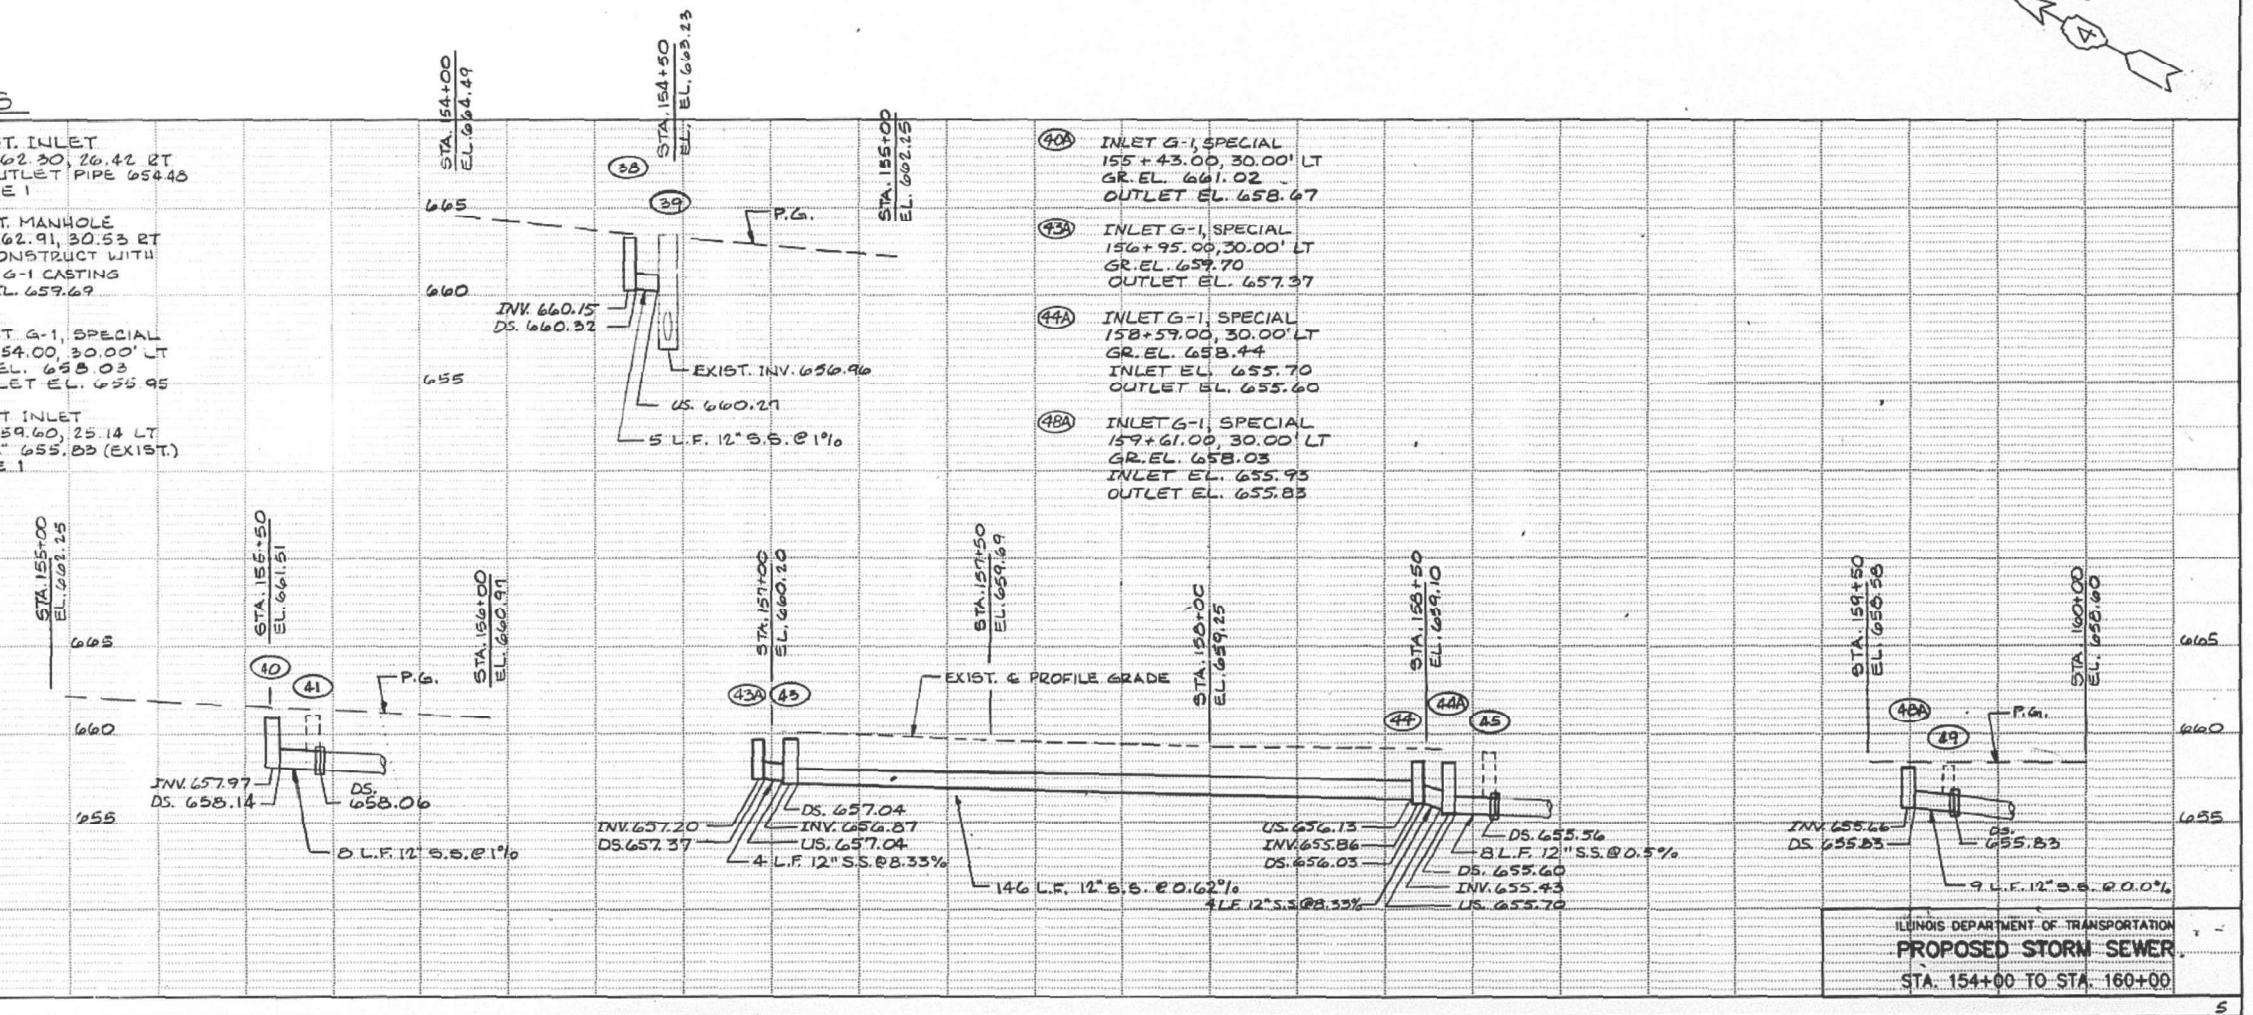 4
S
T. INLET
62.30, 26.42 RT
UTLET PIPE 654.48
E 1
T. MANHOLE
62.91, 30.53 RT
ONSTRUCT WITH
G-1 CASTING
L. 659.69
T G-1, SPECIAL
54.00, 30.00' LT
EL. 658.03
LET EL. 655.95
T INLET
59.60, 25.14 LT
" 655.83 (EXIST.)
E 1
STA. 154+00
EL. 664.49
STA. 154+50
EL. 663.23
STA. 155+00
EL. 662.25
38
39
665
P.G.
660
INV. 660.15
DS. 660.32
655
EXIST. INV. 656.96
US. 660.27
5 L.F. 12" S.S. @ 1%
40A INLET G-1, SPECIAL
155+43.00, 30.00' LT
GR. EL. 661.02
OUTLET EL. 658.67
43A INLET G-1, SPECIAL
156+95.00, 30.00' LT
GR. EL. 659.70
OUTLET EL. 657.37
44A INLET G-1, SPECIAL
158+59.00, 30.00' LT
GR. EL. 658.44
INLET EL. 655.70
OUTLET EL. 655.60
48A INLET G-1, SPECIAL
159+61.00, 30.00' LT
GR. EL. 658.03
INLET EL. 655.93
OUTLET EL. 655.83
STA. 155+00
EL. 662.25
STA. 155+50
EL. 661.51
STA. 156+00
EL. 660.97
STA. 157+00
EL. 660.20
STA. 157+50
EL. 659.69
STA. 158+00
EL. 659.25
STA. 158+50
EL. 659.10
STA. 159+50
EL. 658.58
STA. 160+00
EL. 658.60
665
665
40
41
P.G.
43A
43
EXIST. & PROFILE GRADE
44
44A
45
48A
49
P.G.
660
660
INV. 657.97
DS. 658.14
DS.
658.06
655
8 L.F. 12" S.S. @ 1%
INV. 657.20
DS. 657.37
DS. 657.04
INV. 656.87
US. 657.04
4 L.F. 12" S.S. @ 8.33%
146 L.F. 12" S.S. @ 0.62%
US. 656.13
INV. 655.86
DS. 656.03
4 L.F. 12" S.S. @ 8.33%
DS. 655.56
8 L.F. 12" S.S. @ 0.5%
DS. 655.60
INV. 655.43
US. 655.70
INV. 655.66
DS. 655.83
DS.
655.83
9 L.F. 12" S.S. @ 0.0%
655
ILLINOIS DEPARTMENT OF TRANSPORTATION
PROPOSED STORM SEWER
STA. 154+00 TO STA. 160+00
5